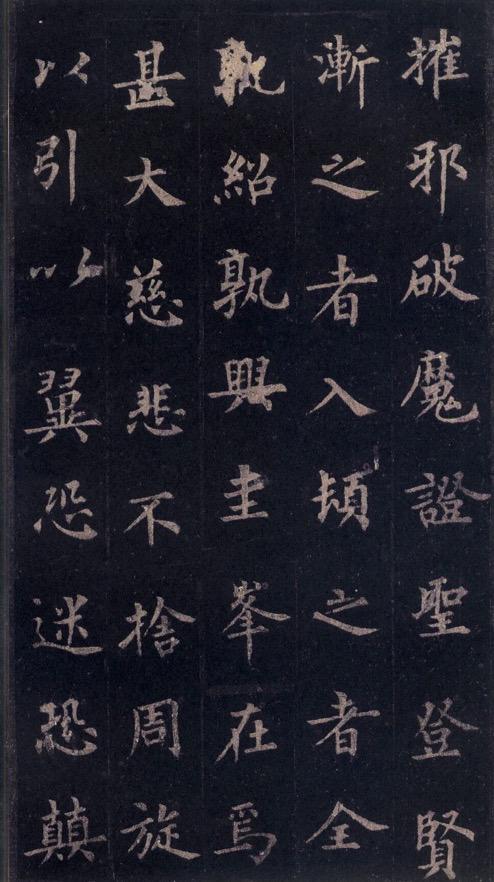 摧邪破魔證聖登賢
漸之者入頓之者全
孰紹孰興圭峯在焉
甚大慈悲不捨周旋
以引以翼恐迷恐顛